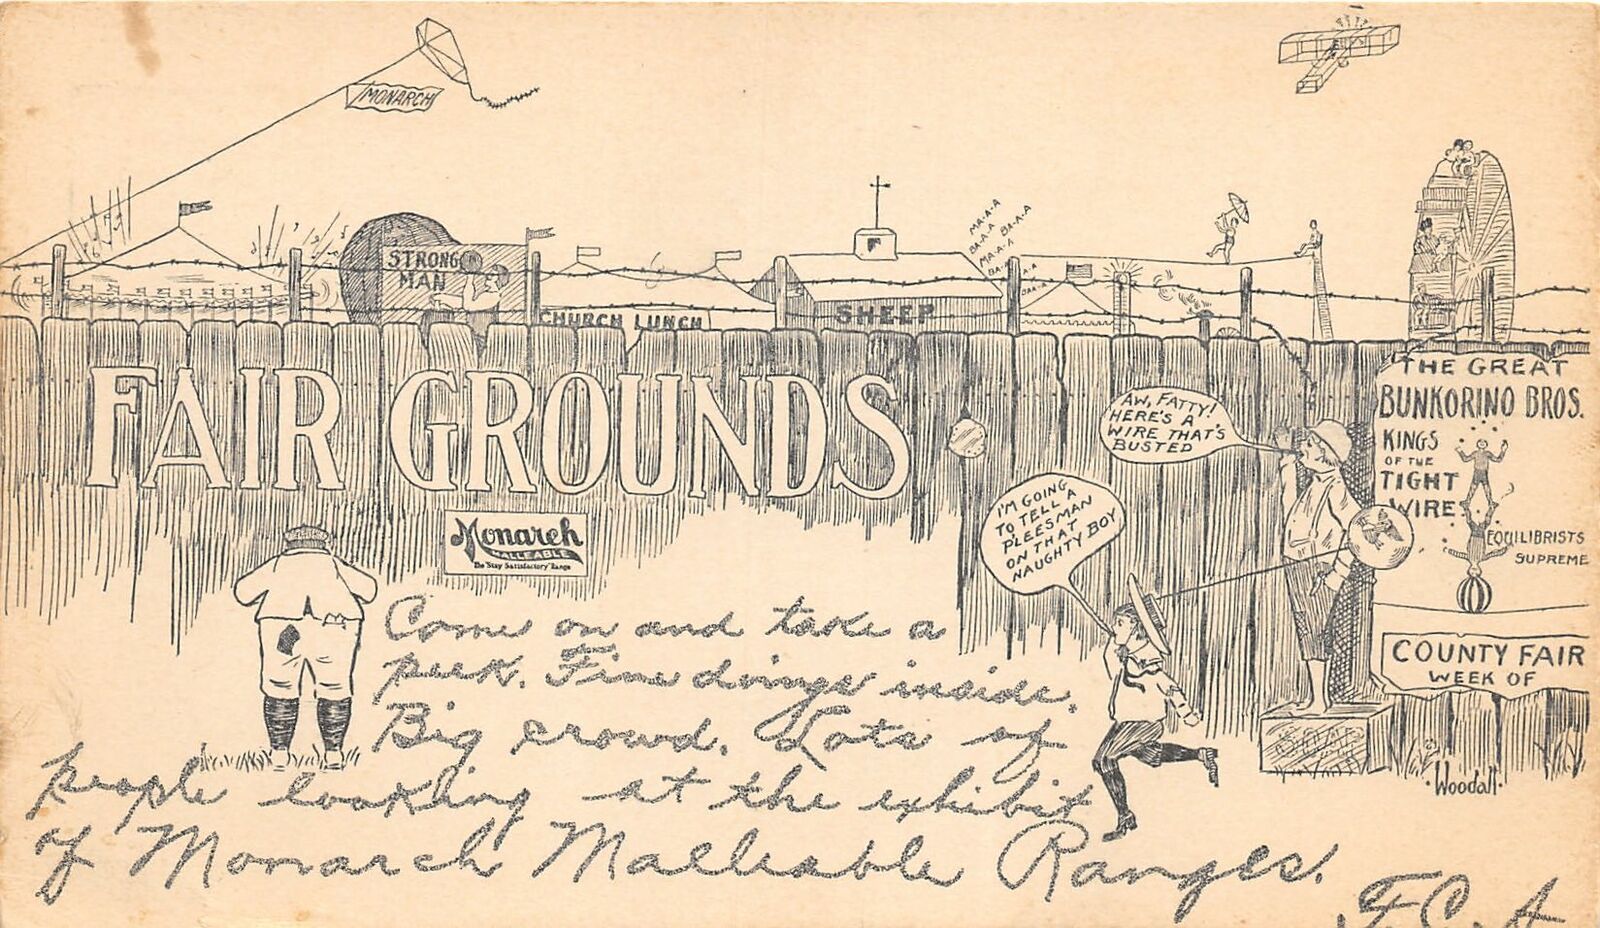 MONARCH
STRONG
MAN
CHURCH LUNCH
SHEEP
MA-A-A
BA-A-A
BA-A-A
MA-A-A
FAIR GROUNDS
Monarch
MALLEABLE
The "Stay Satisfactory" Range
AW, FATTY!
HERE'S A
WIRE THAT'S
BUSTED
I'M GOING
TO TELL A
PLEESMAN
ON THAT
NAUGHTY BOY
THE GREAT
BUNKORINO BROS.
KINGS
OF THE
TIGHT
WIRE
EQUILIBRISTS
SUPREME
COUNTY FAIR
WEEK OF
Come on and take a
peek. Fine doings inside.
Big crowd. Lots of
people looking at the exhibit
of Monarch Malleable Ranges.
F.C.A
·Woodall·